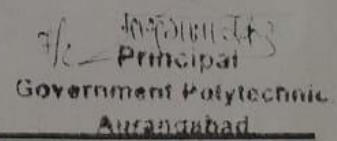 Principal
Government Polytechnic
Aurangabad